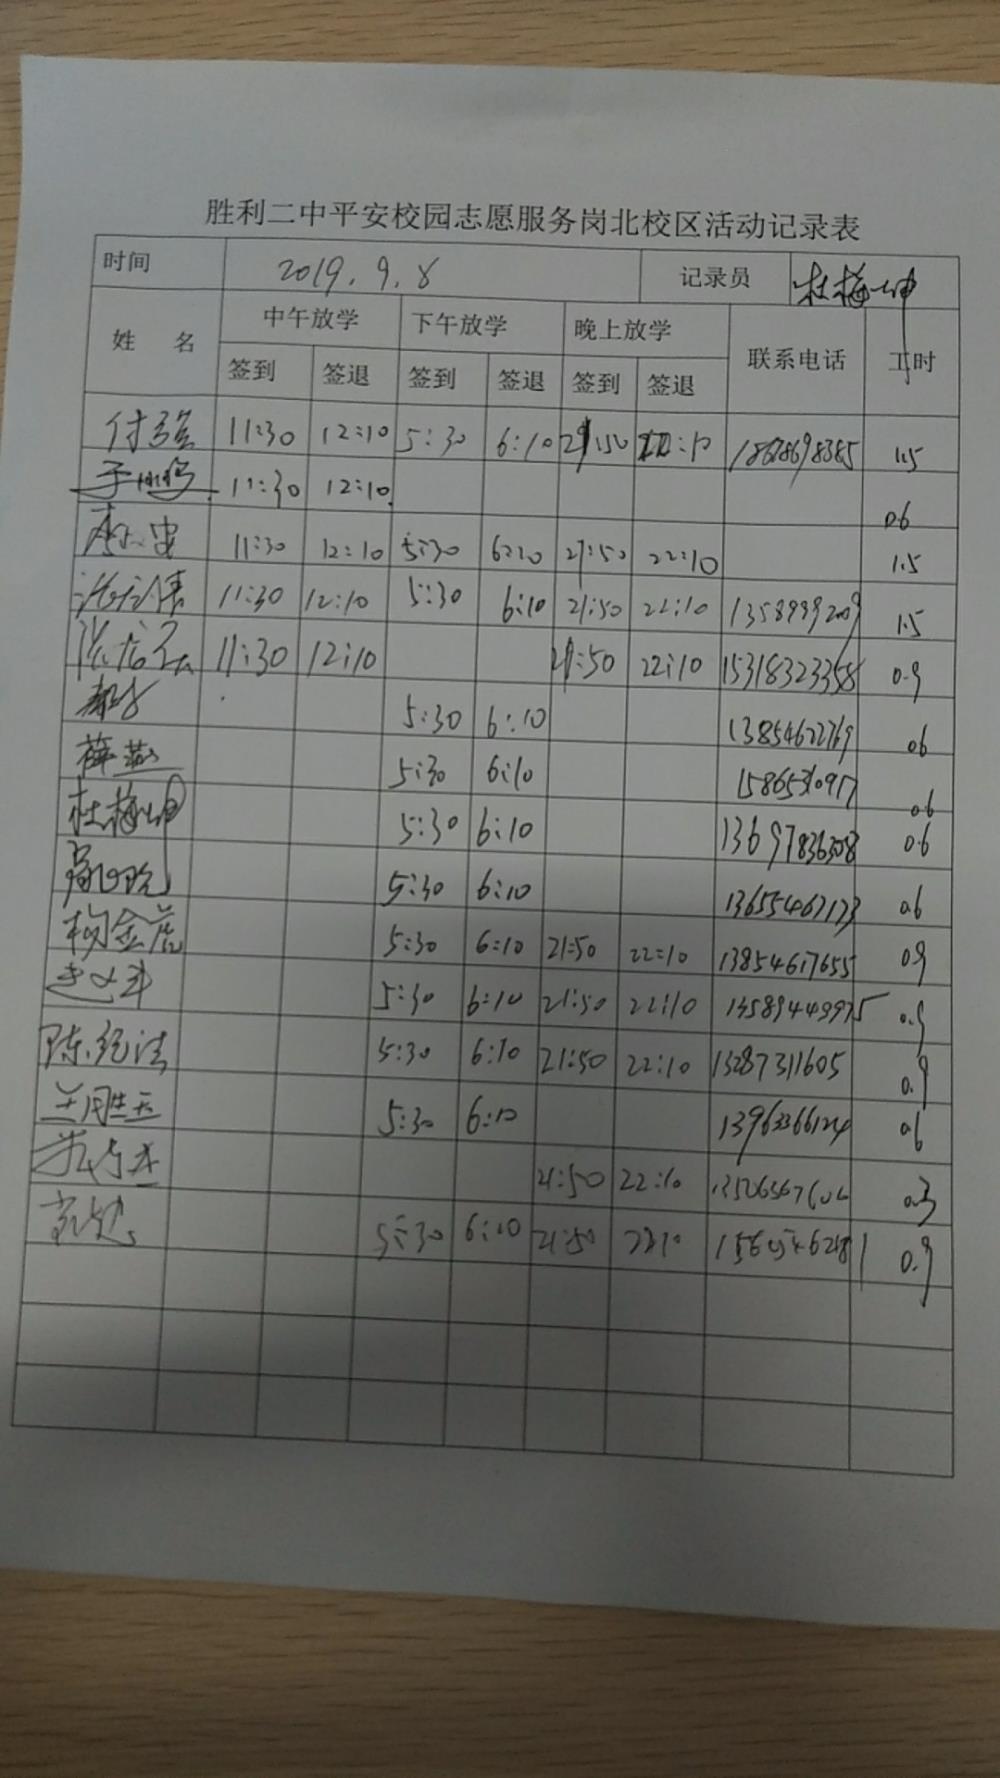 胜利二中平安校园志愿服务岗北校区活动记录表
时间 2019.9.8 记录员 杜梅坤
姓 名 中午放学 下午放学 晚上放学 联系电话 工时
签到 签退 签到 签退 签到 签退
付强 11:30 12:10 5:30 6:10 21:50 :10 1.5
11:30 12:10 0.6
11:30 12:10 5:30 6:10 21:50 22:10 1.5
11:30 12:10 5:30 6:10 21:50 22:10 13589992009 1.5
11:30 12:10 21:50 22:10 15318323358 0.9
5:30 6:10 13854622769 0.6
薛燕 5:30 6:10 0.6
杜梅坤 5:30 6:10 13697836308 0.6
5:30 6:10 13655467173 0.6
杨金虎 5:30 6:10 21:50 22:10 13854617655 0.9
5:30 6:10 21:50 22:10 13589449975 0.9
陈纪法 5:30 6:10 21:50 22:10 13287311605 0.9
5:30 6:10 0.6
21:50 22:10 0.3
5:30 6:10 21:50 22:10 0.9